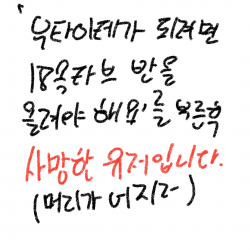 '옥타이레가 되려면
18옥타브 반을
올려야 해요'를 부른 후
사망한 유저입니다.
(머리가 어지러)